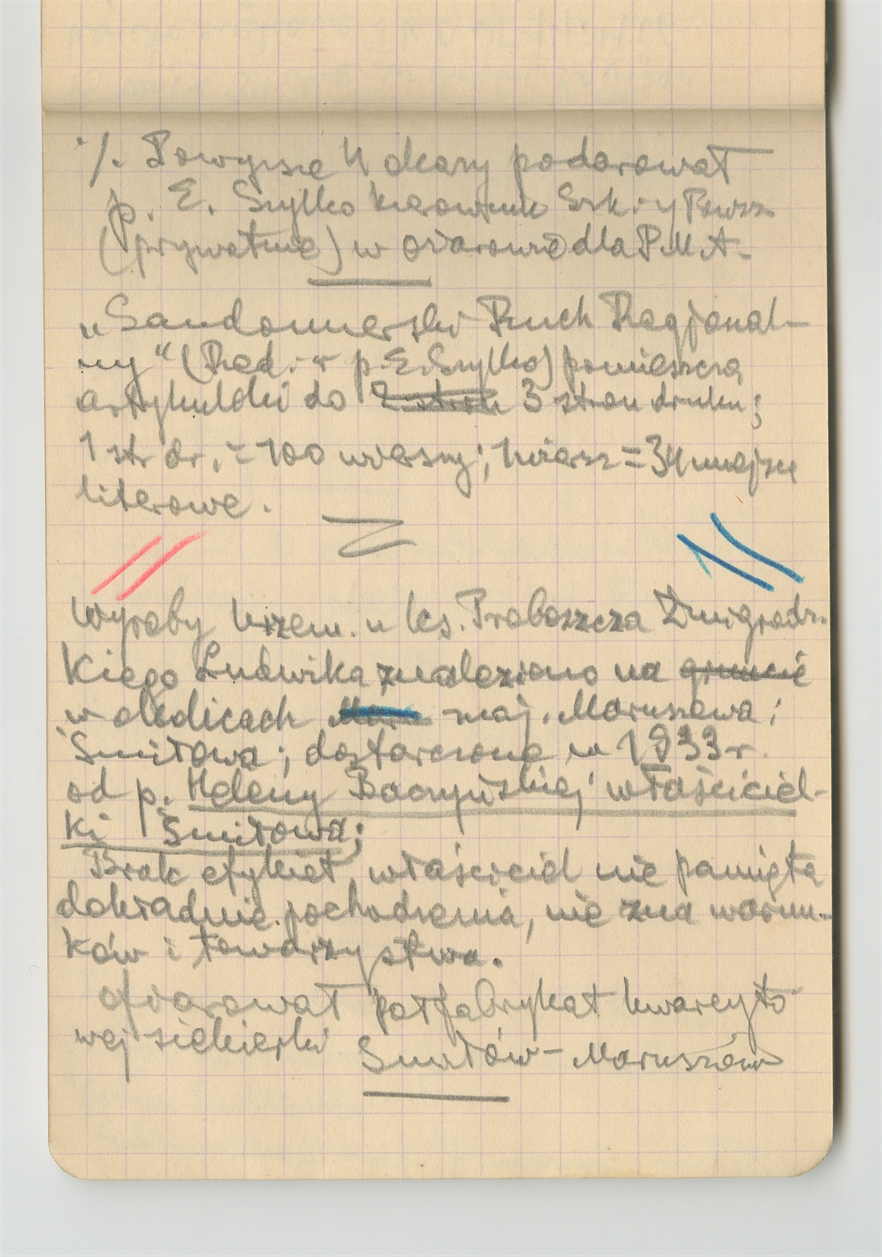 ·/. Powyższe 4 okazy podarował
p. E. Szylko kierownik Szk. Powsz
(prywatnie) w Ożarowie dla P.M.A.
„Sandomierski Ruch Regjonal-
ny" (Red. p. E. Szylko) pomieszcza
artykuliki do 3 stron druku;
1 str dr. = 100 wierszy; 1 wiersz = 34 miejsc
literowe.
Wyroby krzem. u ks. Proboszcza Żmigrodz-
kiego Ludwika znaleziono na gruncie
w okolicach maj. Maruszewa i
Śmiłowa; dostarczone w 1933 r.
od p. Heleny Baczyńskiej właściciel-
ki Śmiłowa;
Brak etykiet, właściciel nie pamięta
dokładnie pochodzenia, nie zna warun-
ków i towarzystwa.
Ofiarował półfabrykat kwarcyto
wej siekierki Śmiłów - Maruszów